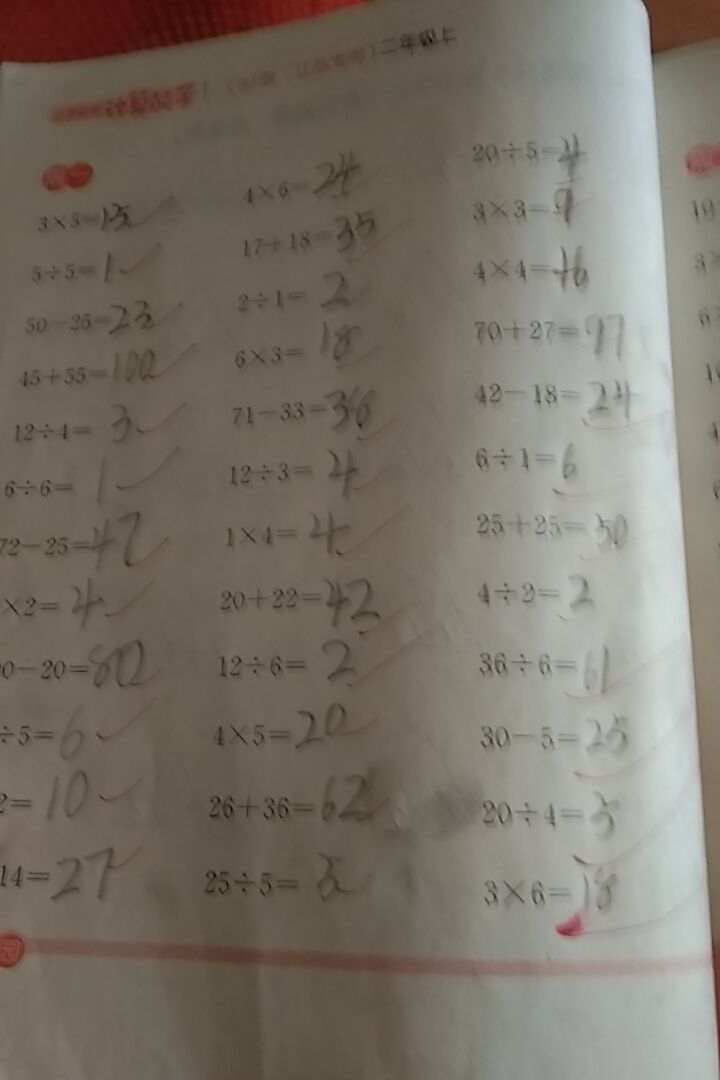 二年级上
3×5=15
5÷5=1
50-25=23
45+55=100
12÷4=3
6÷6=1
72-25=47
×2=4
0-20=80
÷5=6
2=10
14=27
4×6=24
17+18=35
2÷1=2
6×3=18
71-33=36
12÷3=4
1×4=4
20+22=42
12÷6=2
4×5=20
26+36=62
25÷5=5
20÷5=4
3×3=9
4×4=16
70+27=97
42-18=24
6÷1=6
25+25=50
4÷2=2
36÷6=61
30-5=25
20÷4=5
3×6=18